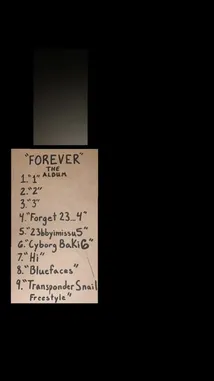 "FOREVER"
THE
ALBUM
1."1"
2."2"
3."3"
4."Forget 23...4"
5."23bbyimissu5"
6."Cyborg BaKi6"
7."Hi"
8."Bluefaces"
9."Transponder Snail
Freestyle"